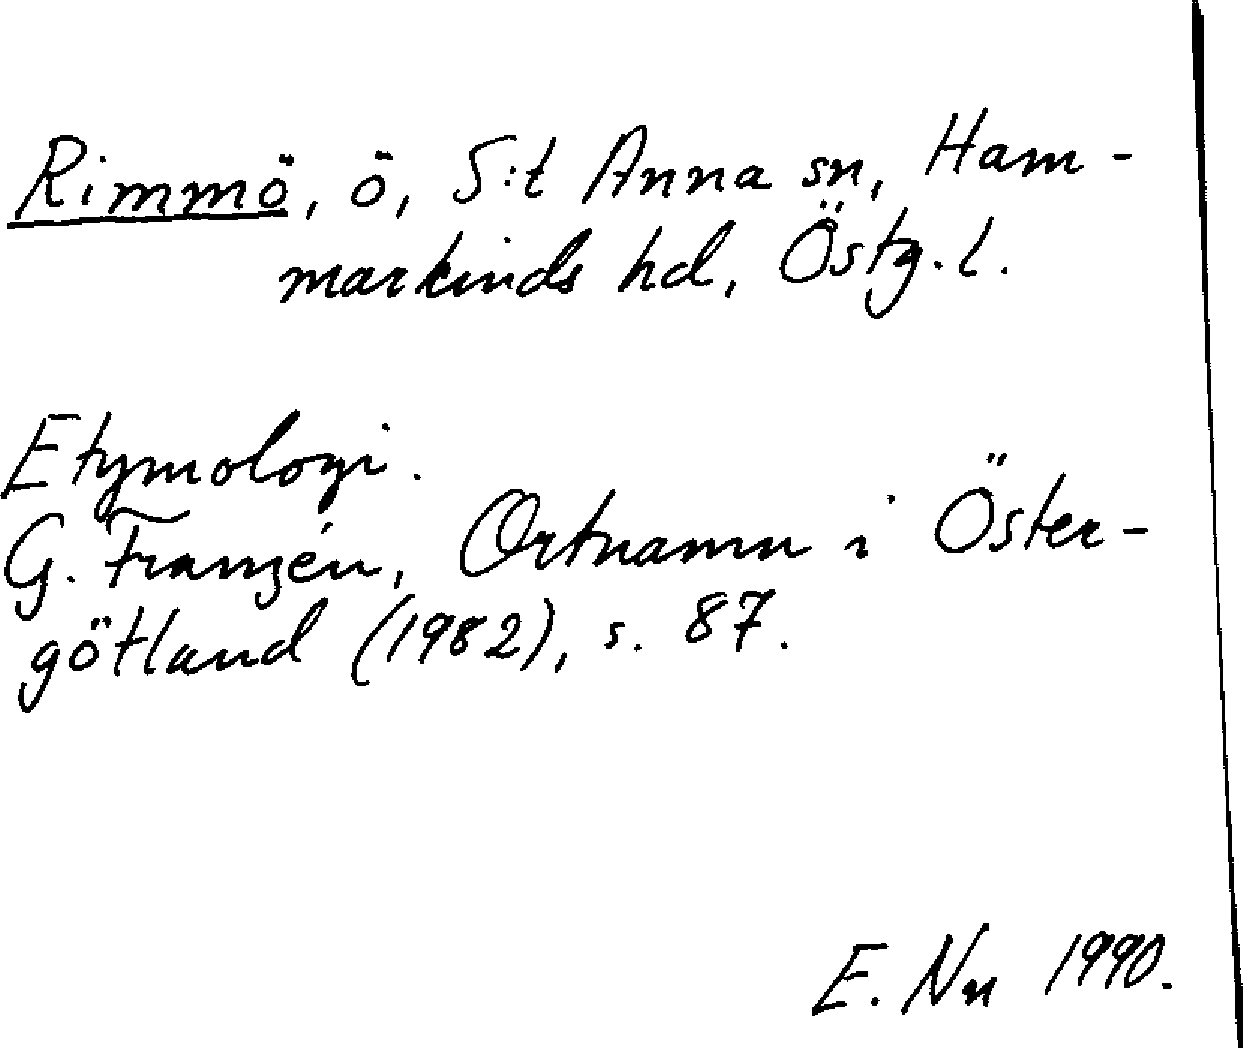 Rimmö, ö, S:t Anna sn, Ham-
markinds hd, Östg.l.
Etymologi.
G. Franzén, Ortnamn i Öster-
götland (1982), s. 87.
E. Nn 1990.